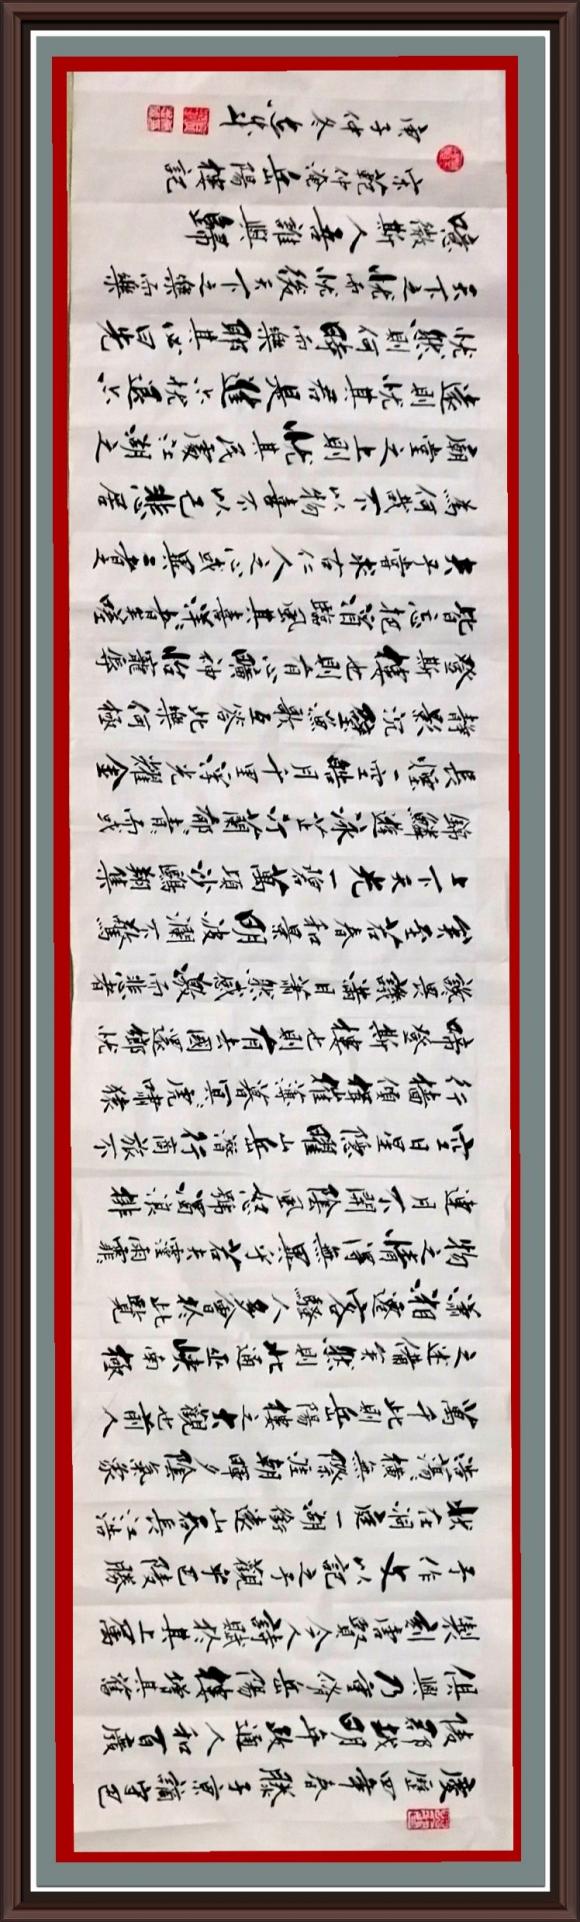 慶歷四年春滕子京謫守巴
陵郡越明年政通人和百廢
俱興乃重修岳陽樓增其舊
製刻唐賢今人詩賦於其上屬
予作文以記之予觀夫巴陵勝
狀在洞庭一湖銜遠山吞長江浩
浩蕩橫無際涯朝暉夕陰氣象
萬千此則岳陽樓之大觀也前人
之述備矣然則北通巫峽南極
瀟湘遷客騷人多會於此覽
物之情得無異乎若夫霪雨霏
連月不開陰風怒號濁浪排
空日星隱曜山岳潛行商旅不
行檣傾楫摧薄暮冥虎嘯猿
啼登斯樓也則有去國還鄉忧
讒畏譏滿目蕭然感激而悲者
矣至若春和景明波瀾不驚
上下天光一碧萬頃沙鷗翔集
錦鱗遊泳芷汀蘭郁青而或
長煙一空皓月千里浮光耀金
靜影沉璧漁歌互答此樂何極
登斯樓也則有心曠神怡寵辱
皆忘把酒臨風其喜洋者矣嗟
夫予嘗求古仁人之心或異二者之
為何哉不以物喜不以己悲居
廟堂之上則忧其民處江湖之
遠則忧其君是進亦忧退亦
忧然則何時而樂耶其必曰先
天下之忧而忧後天下之樂而樂
噫微斯人吾誰與歸
宋範仲淹岳陽樓記
庚子仲冬